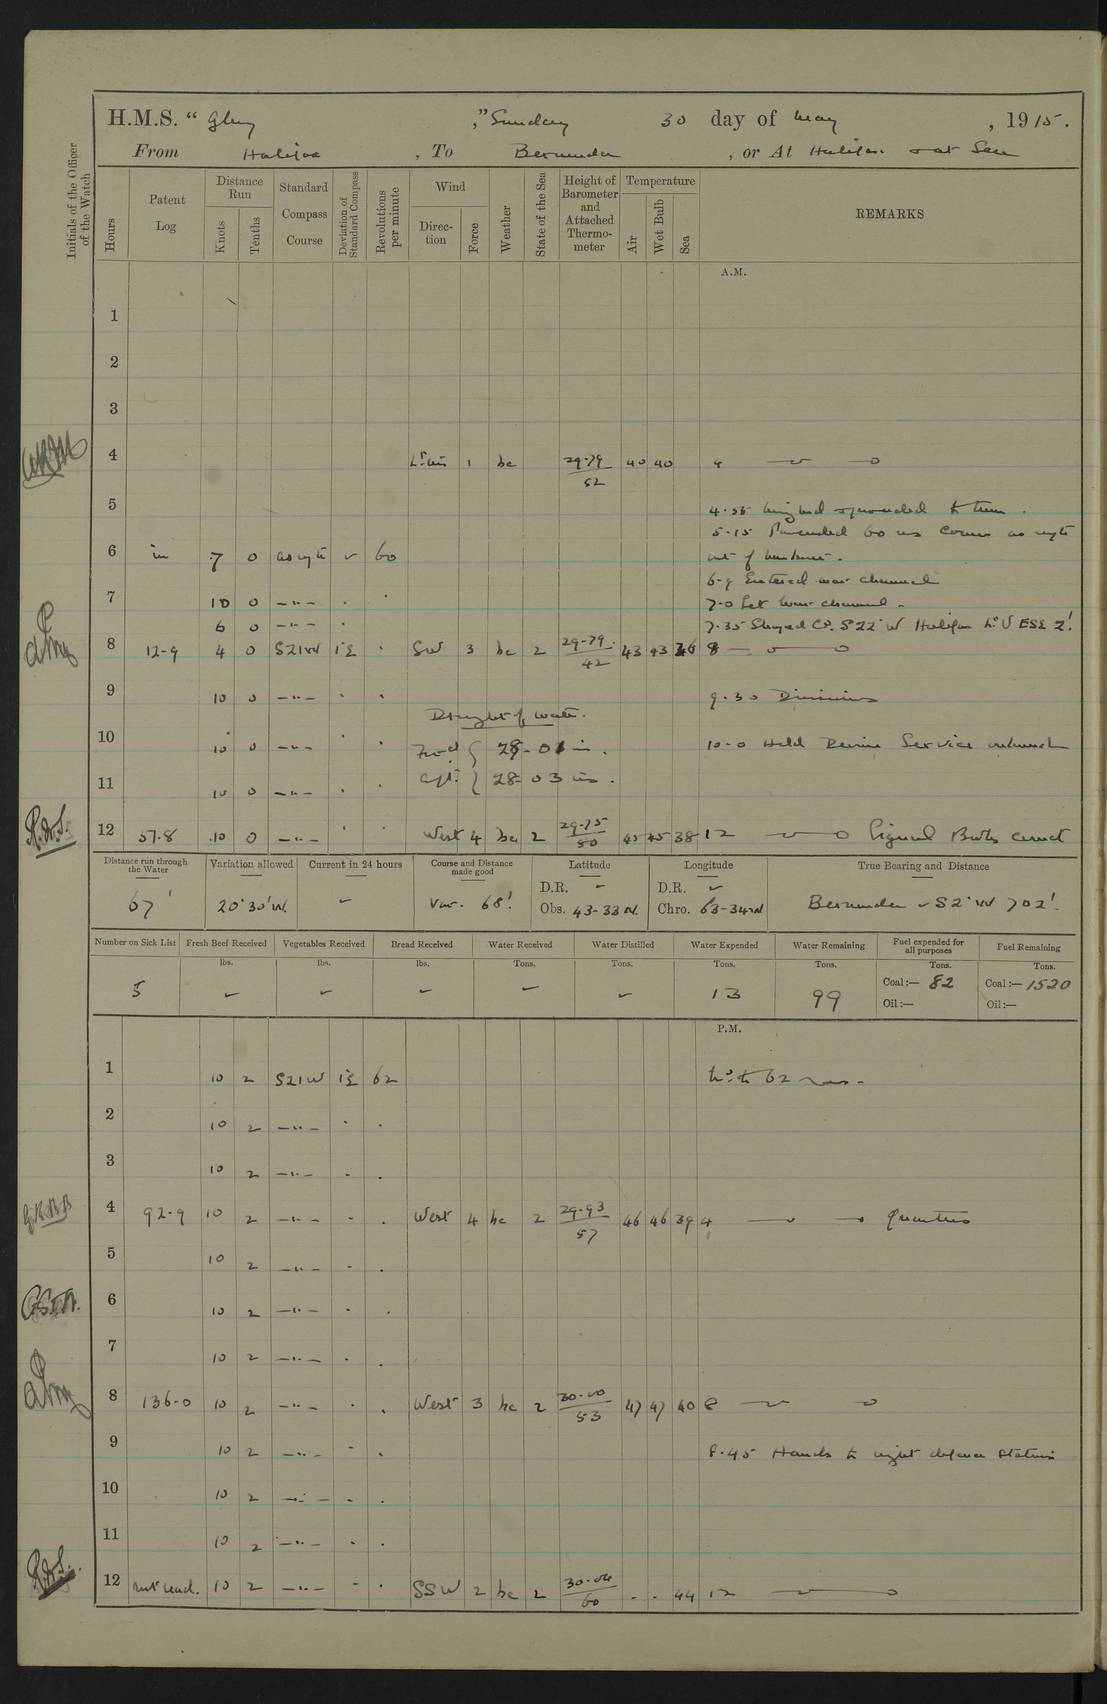 H.M.S. “Glory,” Sunday 30 day of May, 1915.
From Halifax, To Bermuda, or At Halifax & at Sea
Initials of the Officer of the Watch
Hours
Patent Log
Distance Run
Knots
Tenths
Standard Compass Course
Deviation of Standard Compass
Revolutions per minute
Wind
Direction
Force
Weather
State of the Sea
Height of Barometer and Attached Thermometer
Temperature
Air
Wet Bulb
Sea
REMARKS
A.M.
1
2
3
4 Lt airs 1 bc 29.79 52 40 40 4
5 4.55
5.15 Proceeded 60 Courses as reqte
6 in 7 0 as reqte 60 out of harbour.
6.9 Entered war channel
7 10 0 —"— 7.0 Left war channel.
6 0 —"— 7.35 Shaped Co. S22°W Halifax Lt V ESE 2'.
8 12.9 4 0 S21W 1°E SW 3 bc 2 29.79 42 43 43 36 8
9 10 0 —"— 9.30 Divisions
Draught of water.
10 10 0 —"— Forwd 28-01 in. 10.0 Held Divine Service
11 10 0 —"— Aft: 28-03 ins.
12 57.8 10 0 —"— West 4 bc 2 29.75 50 45 45 38 12 Signal Books correct
Distance run through the Water
Variation allowed
Current in 24 hours
Course and Distance made good
Latitude
Longitude
True Bearing and Distance
67'
20°30'W.
Var. 68'.
D.R.
Obs. 43-33 N.
D.R.
Chro. 63-34 W
Bermuda S2°W 702'.
Number on Sick List
Fresh Beef Received
Vegetables Received
Bread Received
Water Received
Water Distilled
Water Expended
Water Remaining
Fuel expended for all purposes
Fuel Remaining
lbs.
lbs.
lbs.
Tons.
Tons.
Tons.
Tons.
Tons.
Tons.
5
13
99
Coal:— 82
Oil:—
Coal:— 1520
Oil:—
P.M.
1 10 2 S21W 1°E 62 62 revs.
2 10 2 —"—
3 10 2 —"—
4 92.9 10 2 —"— West 4 bc 2 29.93 57 46 46 39 4 Quarters
5 10 2 —"—
6 10 2 —"—
7 10 2 —"—
8 136.0 10 2 —"— West 3 bc 2 30.00 53 47 47 40 8
9 10 2 —"— 8.45 Hands to night defence stations
10 10 2 —"—
11 10 2 —"—
12 not read. 10 2 —"— SSW 2 bc 2 30.04 60 44 12